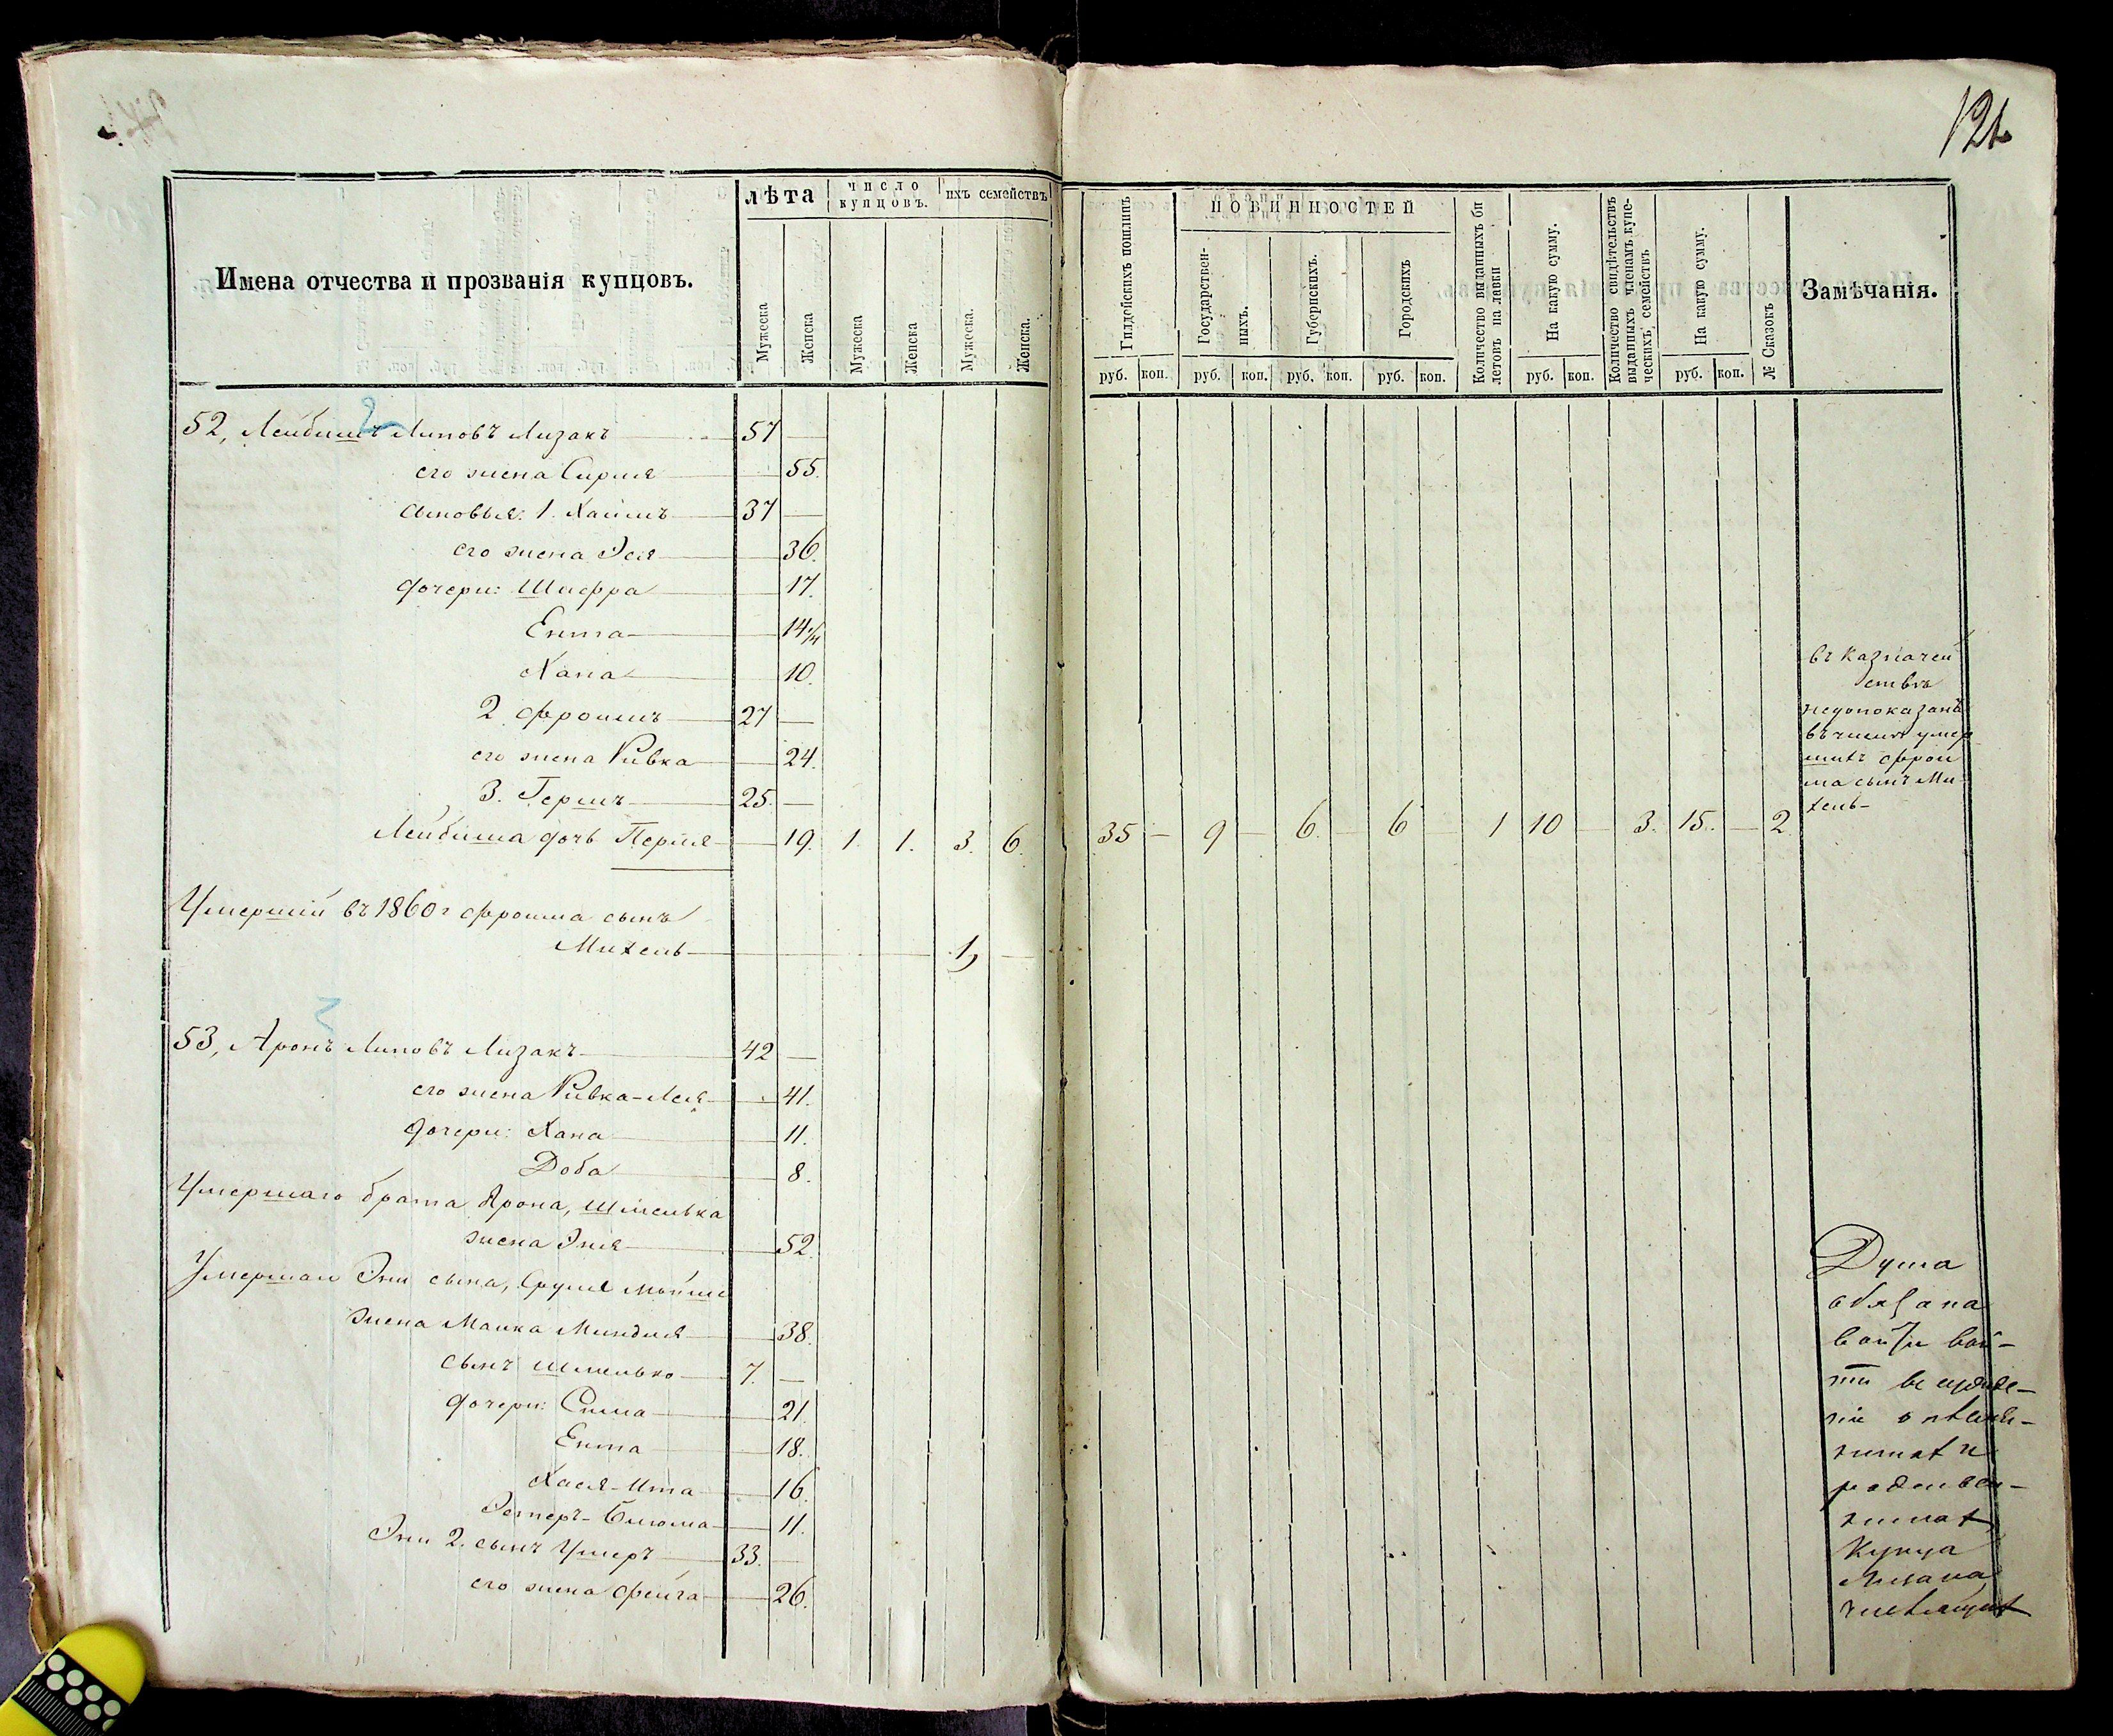 121
Имена отчества и прозванія купцовъ.
лѣта
число купцовъ.
ихъ семействъ
Мужеска
Женска
Мужеска
Женска
Мужеска.
Женска.
Гилдейскихъ пошлинъ
ПОВИННОСТЕЙ
Государствен-
ныхъ.
Губернскихъ.
Городскихъ
Количество выданныхъ би
летовъ на лавки
На какую сумму.
Количество свидѣтельствъ
выданныхъ членамъ купе-
ческихъ семействъ
На какую сумму.
№ Сказокъ
Замѣчанія.
руб. коп. руб. коп. руб. коп. руб. коп. руб. коп. руб. коп.
52, Лейбишъ Липовъ Лизакъ 57 —
его жена Сирля 55.
сыновья: 1. Хаимъ 37 —
его жена Эся 36.
дочери: Шифра 17.
Ента 14 1/4
Хана 10.
2 Фроимъ 27 —
его жена Ривка 24.
3. Гершъ 25. —
Лейбиша дочь Перля 19. 1. 1. 3. 6. 35 — 9 — 6. — 6 — 1 10 — 3. 15. — 2
Умершій въ 1860 г Фроима сынъ
Михель 1,
въ Казначей
ствѣ
недопоказанъ
въ числѣ умер
шихъ Фрои
ма сынъ Ми
хель
53, Аронъ Липовъ Лизакъ 42 —
его жена Ривка-Лея 41.
дочери: Хана 11.
Доба 8.
Умершаго брата Арона, Шмелька
жена Эня 52.
Умершаго Эни сына, Сруля Мошки
жена Малка Миндля 38.
сынъ Шмелько 7. —
дочери: Сима 21.
Ента 18.
Хася-Ита 16.
Эстеръ-Блюма 11.
Эни 2. сынъ Ушеръ 33. —
его жена Фейга 26.
Душа
обязана
вой-
ти
Купца
Лизака